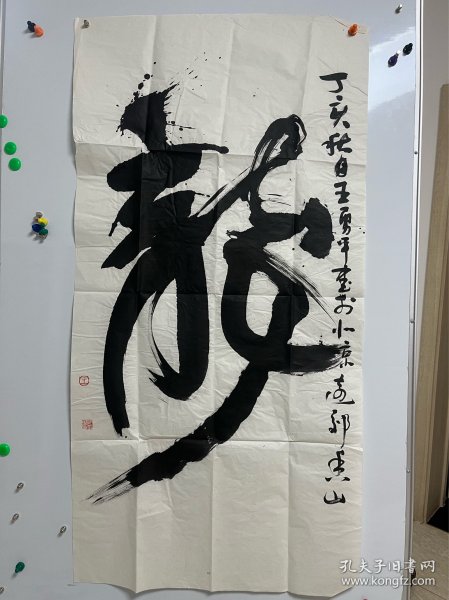 龙
丁亥秋月王勇平书于北京远郊香山
孔夫子旧书网
www.kongfz.com